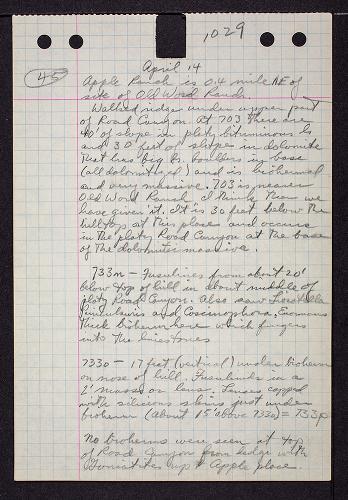 1029
45
April 14
Apple Ranch is 0.4 mile NE of
site of Old Word Ranch.
Walked ridge under upper part
of Road Canyon. At 703 there are
40' of slope in platy bituminous ls
and 30 feet of slope in dolomite
that has big ls. boulders in base
(all dolomitized) and is biohermal
and very massive. 703 is nearer
Old Word Ranch I think than we
have given it. It is 30 feet below the
hilltop at this place and occurs
in the platy Road Canyon at the base
of the dolomitic massive.
733m - Fusulines from about 20'
below top of hill in about middle of
platy Road Canyon. Also saw
and Coscinophora. Enormous
thick bioherm here which fingers
into the limestones
733o - 17 feet (vertical) under bioherm
on nose of hill. Fusulinids in a
2' massive ls lense. Lenses capped
with silicious skins just under
bioherm (about 15' above 733o) = 733p
No bioherms were seen at top
of Road Canyon from ledge with
Goniatites up to Apple place.